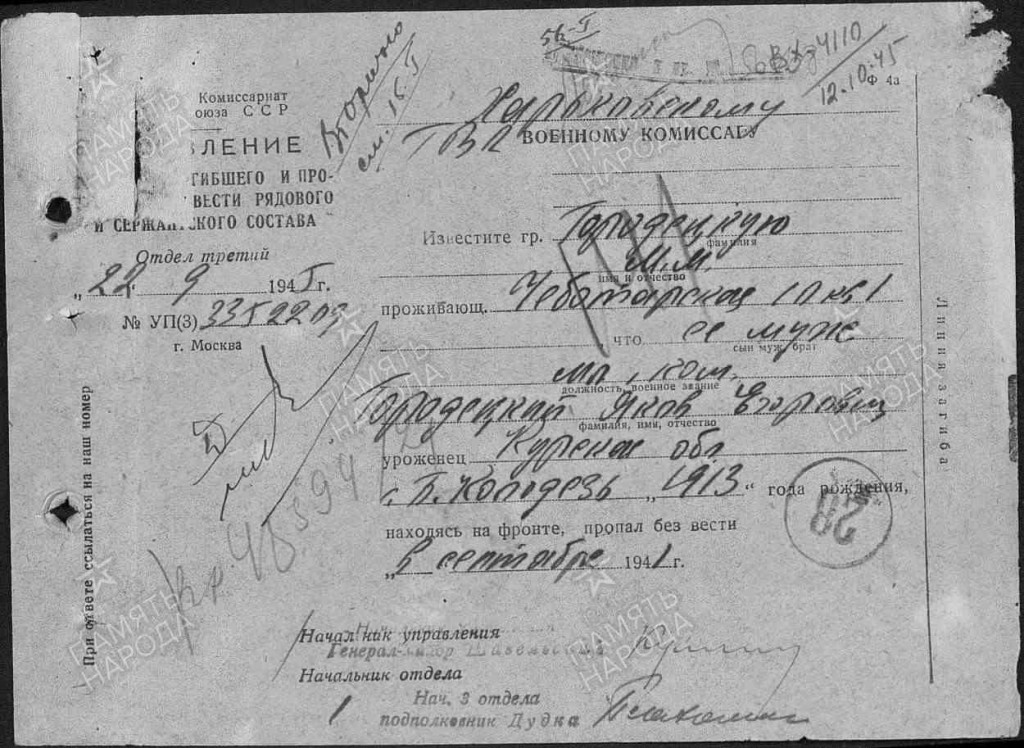 Комиссариат
оюза ССР
ЛЕНИЕ
ГИБШЕГО И ПРО-
ВЕСТИ РЯДОВОГО
И СЕРЖАНТСКОГО СОСТАВА
Отдел третий
„22“ 9 1945 г.
№ УП(3)
г. Москва
При ответе ссылаться на наш номер
Вторично
см. 15. I
56-I
4110
12.10.45
Ф 4а
Харьковскому
ГВК ВОЕННОМУ КОМИССАРУ
Известите гр. Городецкую
фамилия
М.М.
имя и отчество
проживающ. Чеботарская 1 кв 1
что ее муж
сын муж, брат
мл. ком.
должность, военное звание
Городецкий Яков Егорович
фамилия, имя, отчество
уроженец Курская обл
с. Б. Колодезь „1913“ года рождения,
находясь на фронте, пропал без вести
„в сентябре 1941 г.
28
Линия загиба
Начальник управления
Генерал-майор
Начальник отдела
Нач. 3 отдела
подполковник Дудка
ПАМЯТЬ НАРОДА